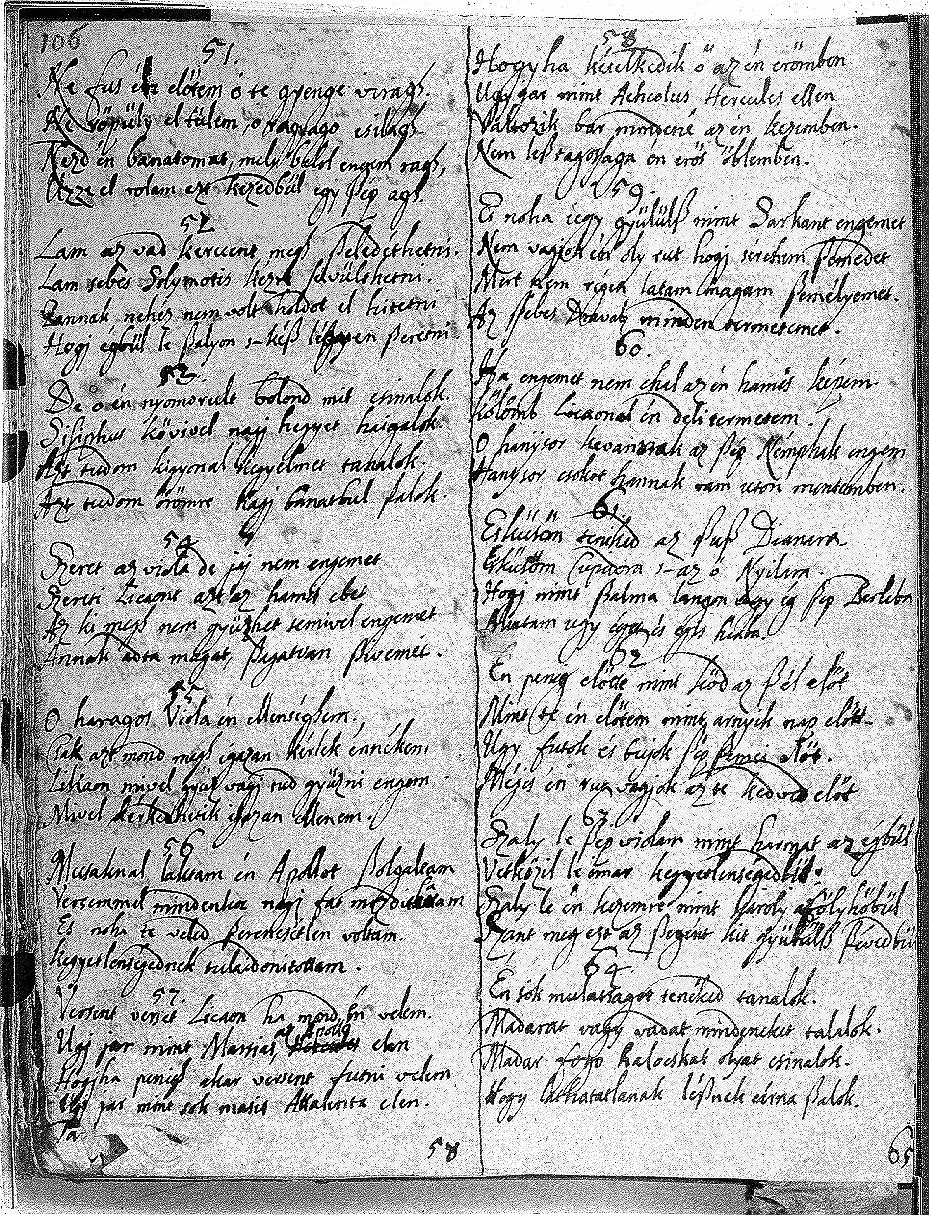 106
51.
Ne fus én elöttem o te gyenge viragh.
Ne röpüly el tülem, o ragyago csilagh
Nezd én banatomat, mely belöl engem ragh,
Üzze el rolam ezt kezedbül egy szep agh.
52
Lam az vad kercent megh szeledethetni.
Lam sebes Solymotis kezre
Annak nehez nem volt holdot el hitetni
Hogj égbül le szalyon s-kész légyen szeretni
53.
De o én nyomorult bolond mit csinalok.
Sisiphus kövivel nagj hegyet haigalok
Azt tudom kigyonal kegyelmet talalok.
Azt tudom örömre Nagj banatbul szalok.
54
Szeret az viola de jaj nem engemet
Szereti Licaont azt az hamis ebet
Az ki megh nem gyüzhet semivel engemet
Annak adta magat, szagatvan szivemet.
55
O haragos Viola én ellenséghem.
Csak azt mond megh igazan kérlek énnékem
Likaon mivel gyüz vagj tud gyüzni engem
Mivel kérkedhetik igazan ellenem.
56
Musaknal laktam én Apollot szolgaltam
Versemmel mindenkor nagj fat
Es noha te veled szerencsétlen voltam.
Kegyetlensegednek tulaidonitottam.
57.
Versent verset Licaon ha mond én velem.
Ugj jar mint Marsias az nagj elen
Hogyha penigh akar versent futni velem
Ugj jar mint sok masis Attalenta elen.
58
58
Hogyha késelkedik ö az én erömben
Ugy jar mint Acheolus Hercules ellen
Valtozik bar mindené az én kezemben.
Nem lesz tagossaga én erös öblemben.
59.
Es noha ugy gyülülsz mint Sarkant engemet
Nem vagyok én oly rut hogj sértsem szemedet
Mert nem régen latam magam személyemet.
Az sebes Dravaban minden termetemet.
60.
Ha engemet nem chal az én hamis képem
Kölömb Licaonal én deli termetem.
O hanyszor kevannak az szép Némphak engem
Hanyszor csokot hannak ram uton mentemben.
61.
Esküszöm tenéked az szüsz Dianara
Esküszöm Cupidora s-az ö Nyilara.
Hogj mint szalma langon ugy ég szep Berkeben
Miattam egy egy és egis hiaba.
62
En penig elötte mint köd az szél elöt
Mint te én elöttem mint arnyek nap elött
Ugy futok és bujok szép szemei elöt.
Mégis én rut vagjok az te kedved elöt
63.
Szaly le szép violam mint harmat az égbül
Vetközél le imar kegyetlenségedbül.
Szaly le én kezemre mint karoly az fölyhöbül
Szant meg ezt az szegent kit gyülölsz szivedbül
64.
En sok mulatsagot tenéked tanalok.
Madarat vagy vadat mindeneket talalok.
Madar fogo kalockat olyat csinalok.
Hogy lathatatlanak lésznek czérna szalok.
65